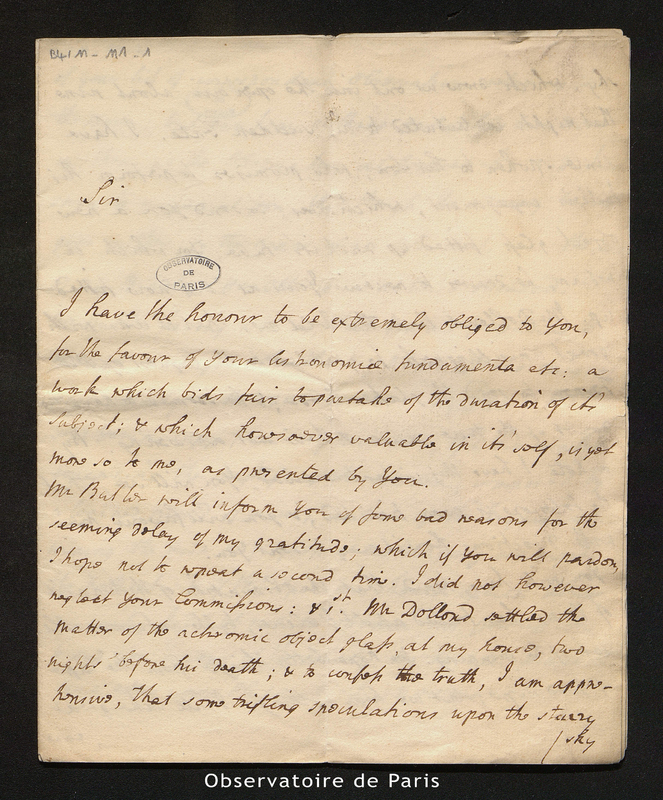 B4/11 - 11 - 1
Sir
OBSERVATOIRE
DE
PARIS
I have the honour to be extremely obliged to You,
for the favour of Your Astronomiæ fundamenta etc: a
work which bids fair to partake of the duration of its'
subject; & which howsoever valuable in its' self, is yet
more so to me, as presented by You.
Mr Butler will inform You of some bad reasons for the
seeming delay of my gratitude; which if You will pardon,
I hope not to repeat a second time. I did not however
neglect Your Commissions: & 1st. Mr Dollond settled the
matter of the acromic object glass, at my house, two
nights before his death; & to confess the truth, I am appre-
hensive, that some trifling speculations upon the starry
/sky
Observatoire de Paris